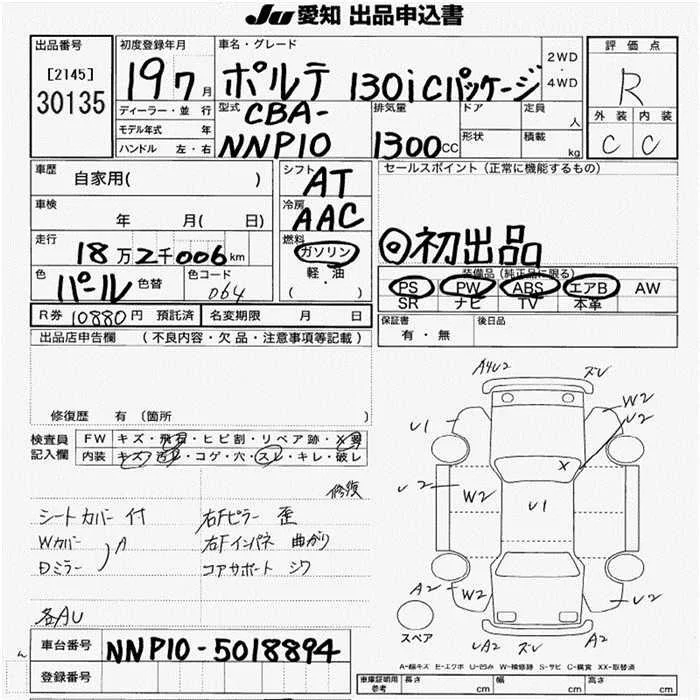 JU 愛知 出品申込書
出品番号
[2145]
30135
初度登録年月
19 7 月
車名・グレード
ポルテ 130i Cパッケージ
2WD
・
4WD
評価点
R
外装 内装
C C
ディーラー・並 行
モデル年式 年
ハンドル 左・右
型式
CBA-
NNP10
排気量
1300CC
ドア
定員
人
形状
積載
kg
車歴
自家用( )
シフト
AT
セールスポイント(正常に機能するもの)
◎初出品
車検
年 月( 日)
冷房
AAC
走行
18万2千006km
燃料
ガソリン
軽・油
( ・ )
色
パール
色替
色コード
064
装備品(純正品に限る)
PS PW ABS エアB AW
SR ナビ TV 本革
R券 10880円 預託済
名変期限 月 日
保証書
有・無
後日品
出品店申告欄 (不良内容・欠品・注意事項等記載)
修復歴 有(箇所 )
検査員
記入欄
FW キズ・飛石・ヒビ割・リペア跡・X要
内装 キズ・汚レ・コゲ・穴・スレ・キレ・破レ
修復
シートカバー付 右Fピラー 歪
Wカバー 右Fインパネ 曲がり
Dミラー A コアサポート シワ
各AU
車台番号 NNP10-5018894
登録番号
A4U2 ズレ
U1 W2
U2
X
U2 W2 U1
A2 W2 U2
スペア
UA2 ズレ A2
A-線キズ E-エクボ U-凹み W-補修跡 S-サビ C-腐食 XX-取替済
車庫証明用
参考
長さ cm 幅 cm 高さ cm